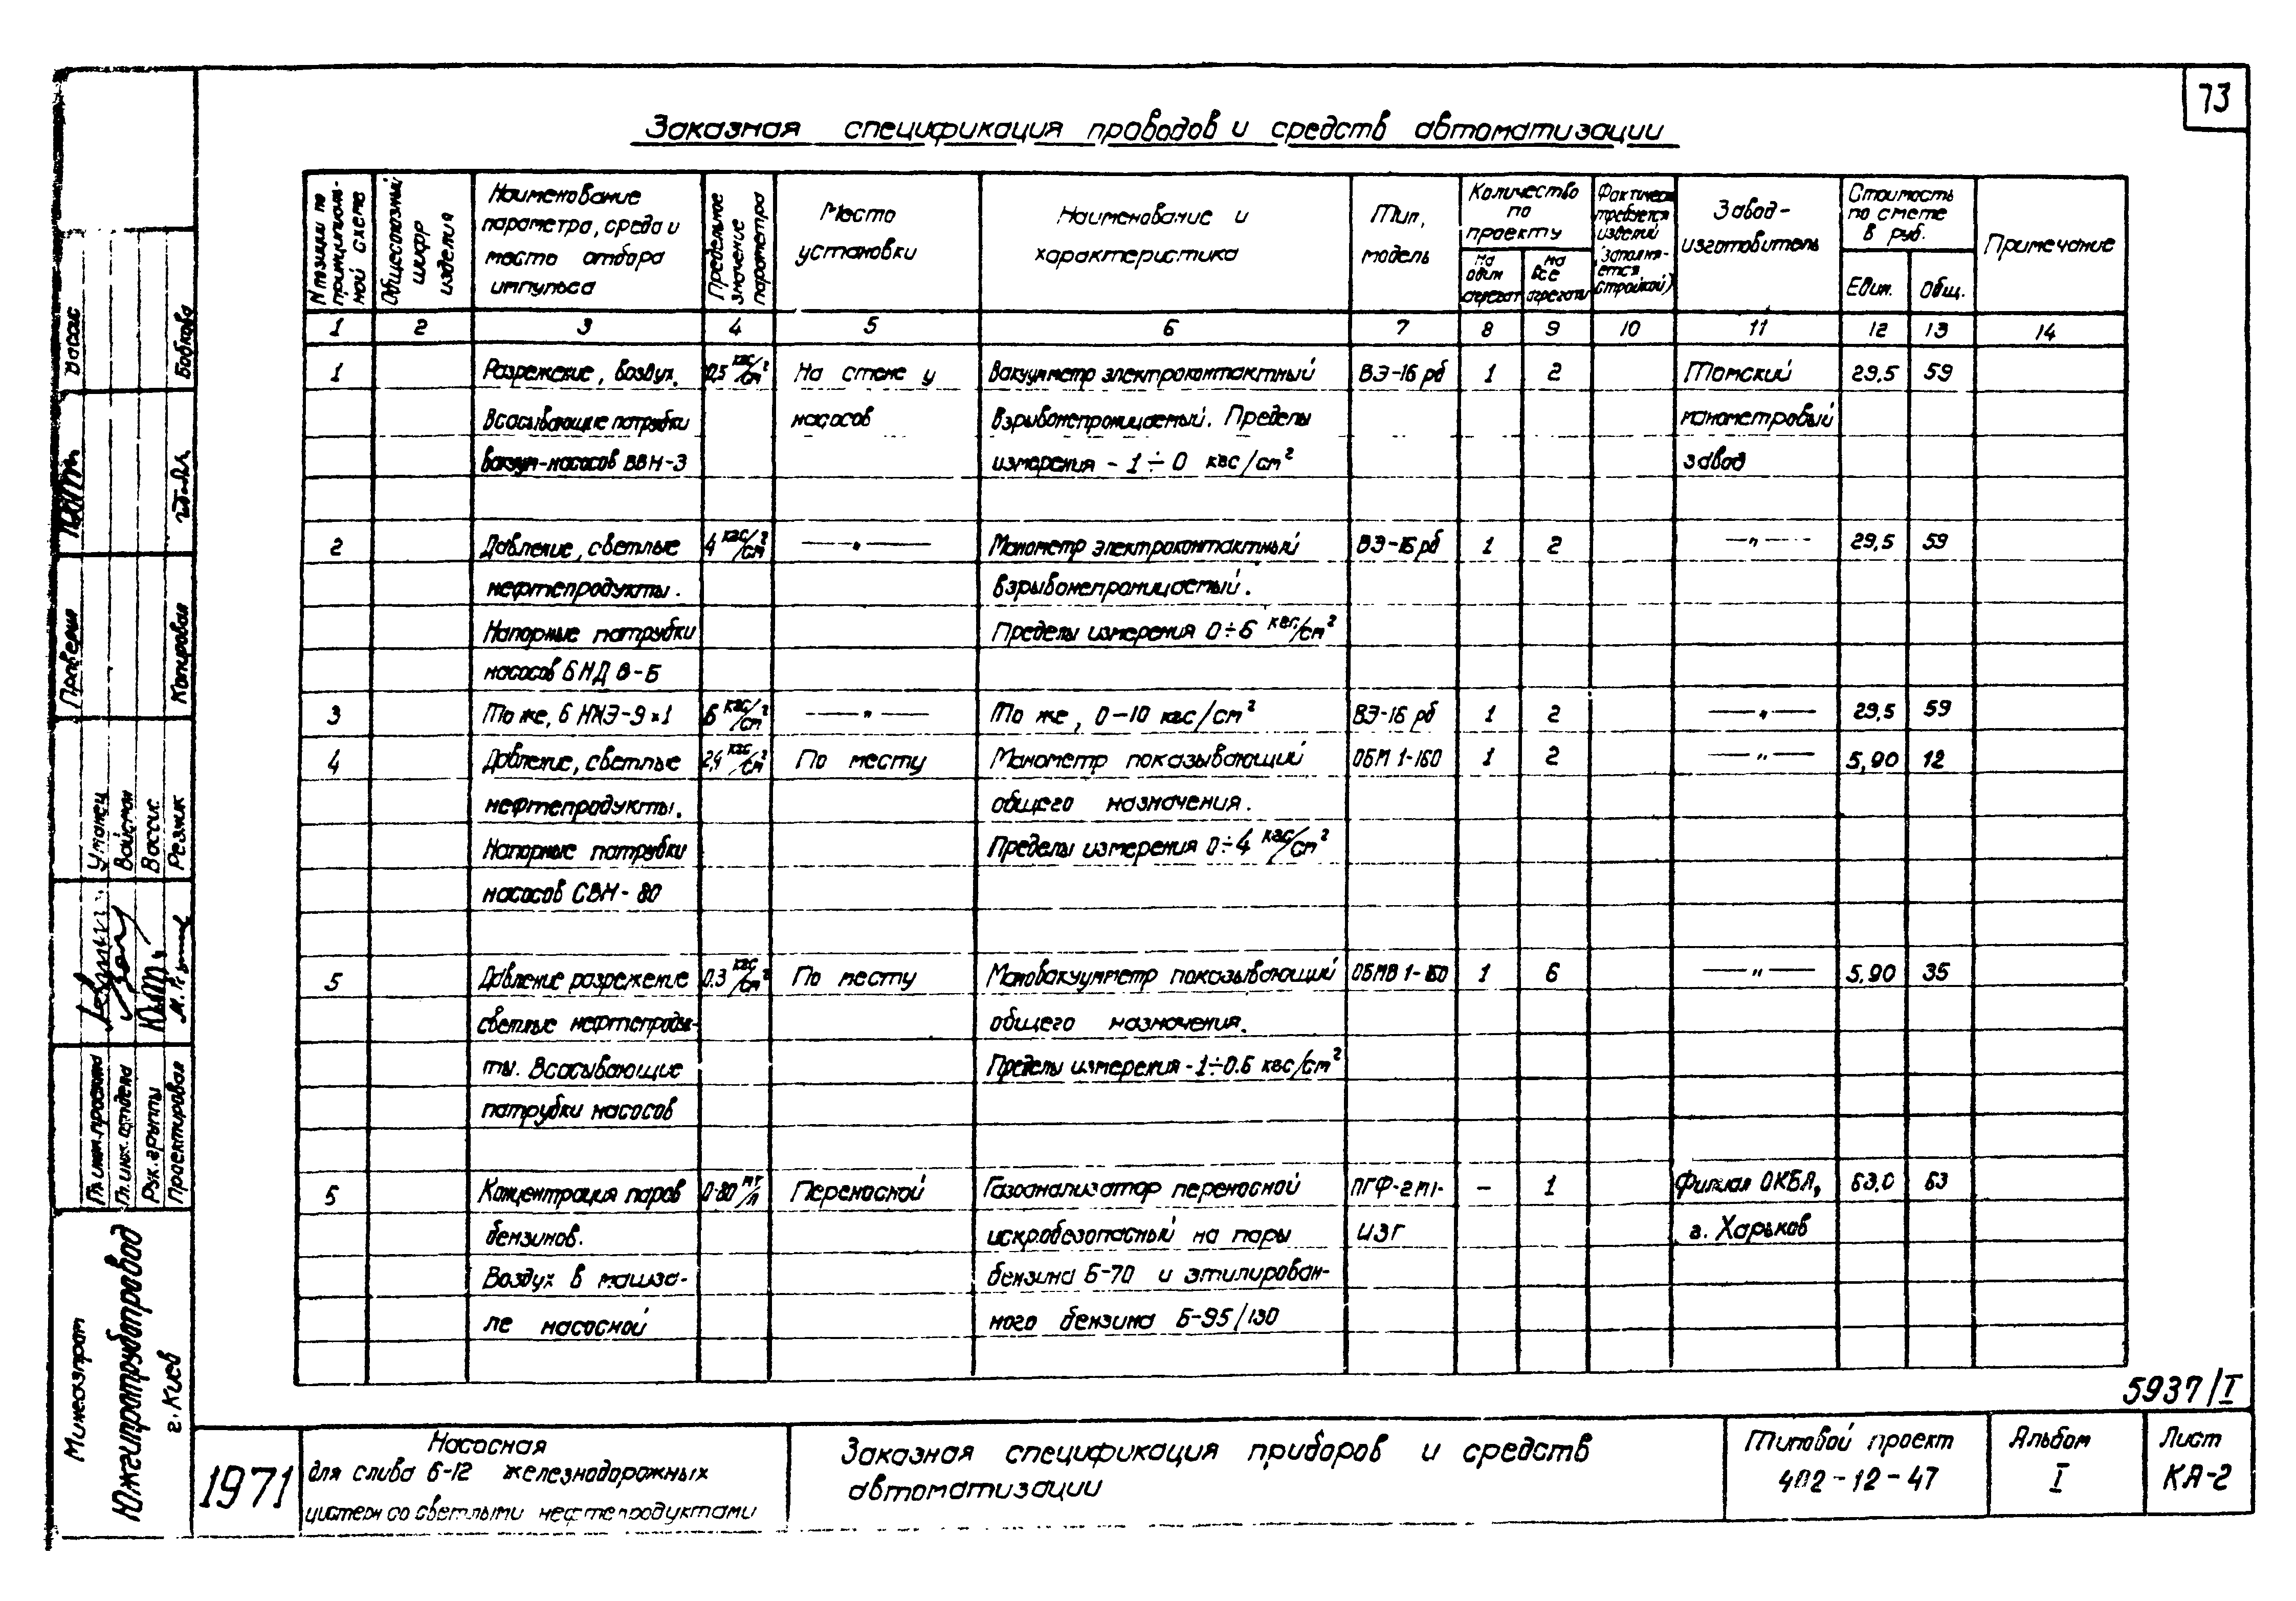 73
Заказная спецификация проводов и средств автоматизации
N позиции по принципиальной схеме
Общесоюзный шифр изделия
Наименование параметра, среда и место отбора импульса
Предельное значение параметра
Место установки
Наименование и характеристика
Тип, модель
Количество по проекту
На один агрегат
на все агрегаты
Фактически требуется изделий (заполняется стройкой)
Завод-изготовитель
Стоимость по смете в руб.
Един.
Общ.
Примечание
1 2 3 4 5 6 7 8 9 10 11 12 13 14
1 Разрежение, воздух. 0,5 кгс/см² На стене у Вакуумметр электроконтактный ВЭ-16 рб 1 2 Томский 29,5 59
Всасывающие патрубки насосов взрывонепроницаемый. Пределы манометровый
вакуум-насосов ВВН-3 измерения - 1÷0 кгс/см² завод
2 Давление, светлые 4 кгс/см² —"— Манометр электроконтактный ВЭ-16 рб 1 2 —"— 29,5 59
нефтепродукты. взрывонепроницаемый.
Напорные патрубки Пределы измерения 0÷6 кгс/см²
насосов 6 НД В-Б
3 То же, 6 НКЭ-9×1 6 кгс/см² —"— То же, 0-10 кгс/см² ВЭ-16 рб 1 2 —"— 29,5 59
4 Давление, светлые 2,4 кгс/см² По месту Манометр показывающий ОБМ 1-160 1 2 —"— 5,90 12
нефтепродукты. общего назначения.
Напорные патрубки Пределы измерения 0÷4 кгс/см²
насосов СВН-80
5 Давление разрежение 0.3 кгс/см² По месту Мановакуумметр показывающий ОБМВ 1-160 1 6 —"— 5,90 35
светлые нефтепродук-
ты. Всасывающие общего назначения.
патрубки насосов Пределы измерения -1÷0.6 кгс/см²
5 Концентрация паров 0-80 мг/л Переносной Газоанализатор переносной ПГФ-2М1- – 1 Филиал ОКБА, 63,0 63
бензинов. искробезопасный на пары ИЗГ г. Харьков
Воздух в машза- бензина Б-70 и этилирован-
ле насосной ного бензина Б-95/130
5937/I
1971
Насосная
для слива 6-12 железнодорожных
цистерн со светлыми нефтепродуктами
Заказная спецификация приборов и средств
автоматизации
Типовой проект
402-12-47
Альбом
I
Лист
КА-2
Мингазпром
Южгипротрубопровод
г. Киев
Гл. инж. проекта
Гл. инж. отдела
Рук. группы
Проектировал
Уманец
Вайсман
Вассис
Резник
Проверил
Копировал
Вассис
Бобкова